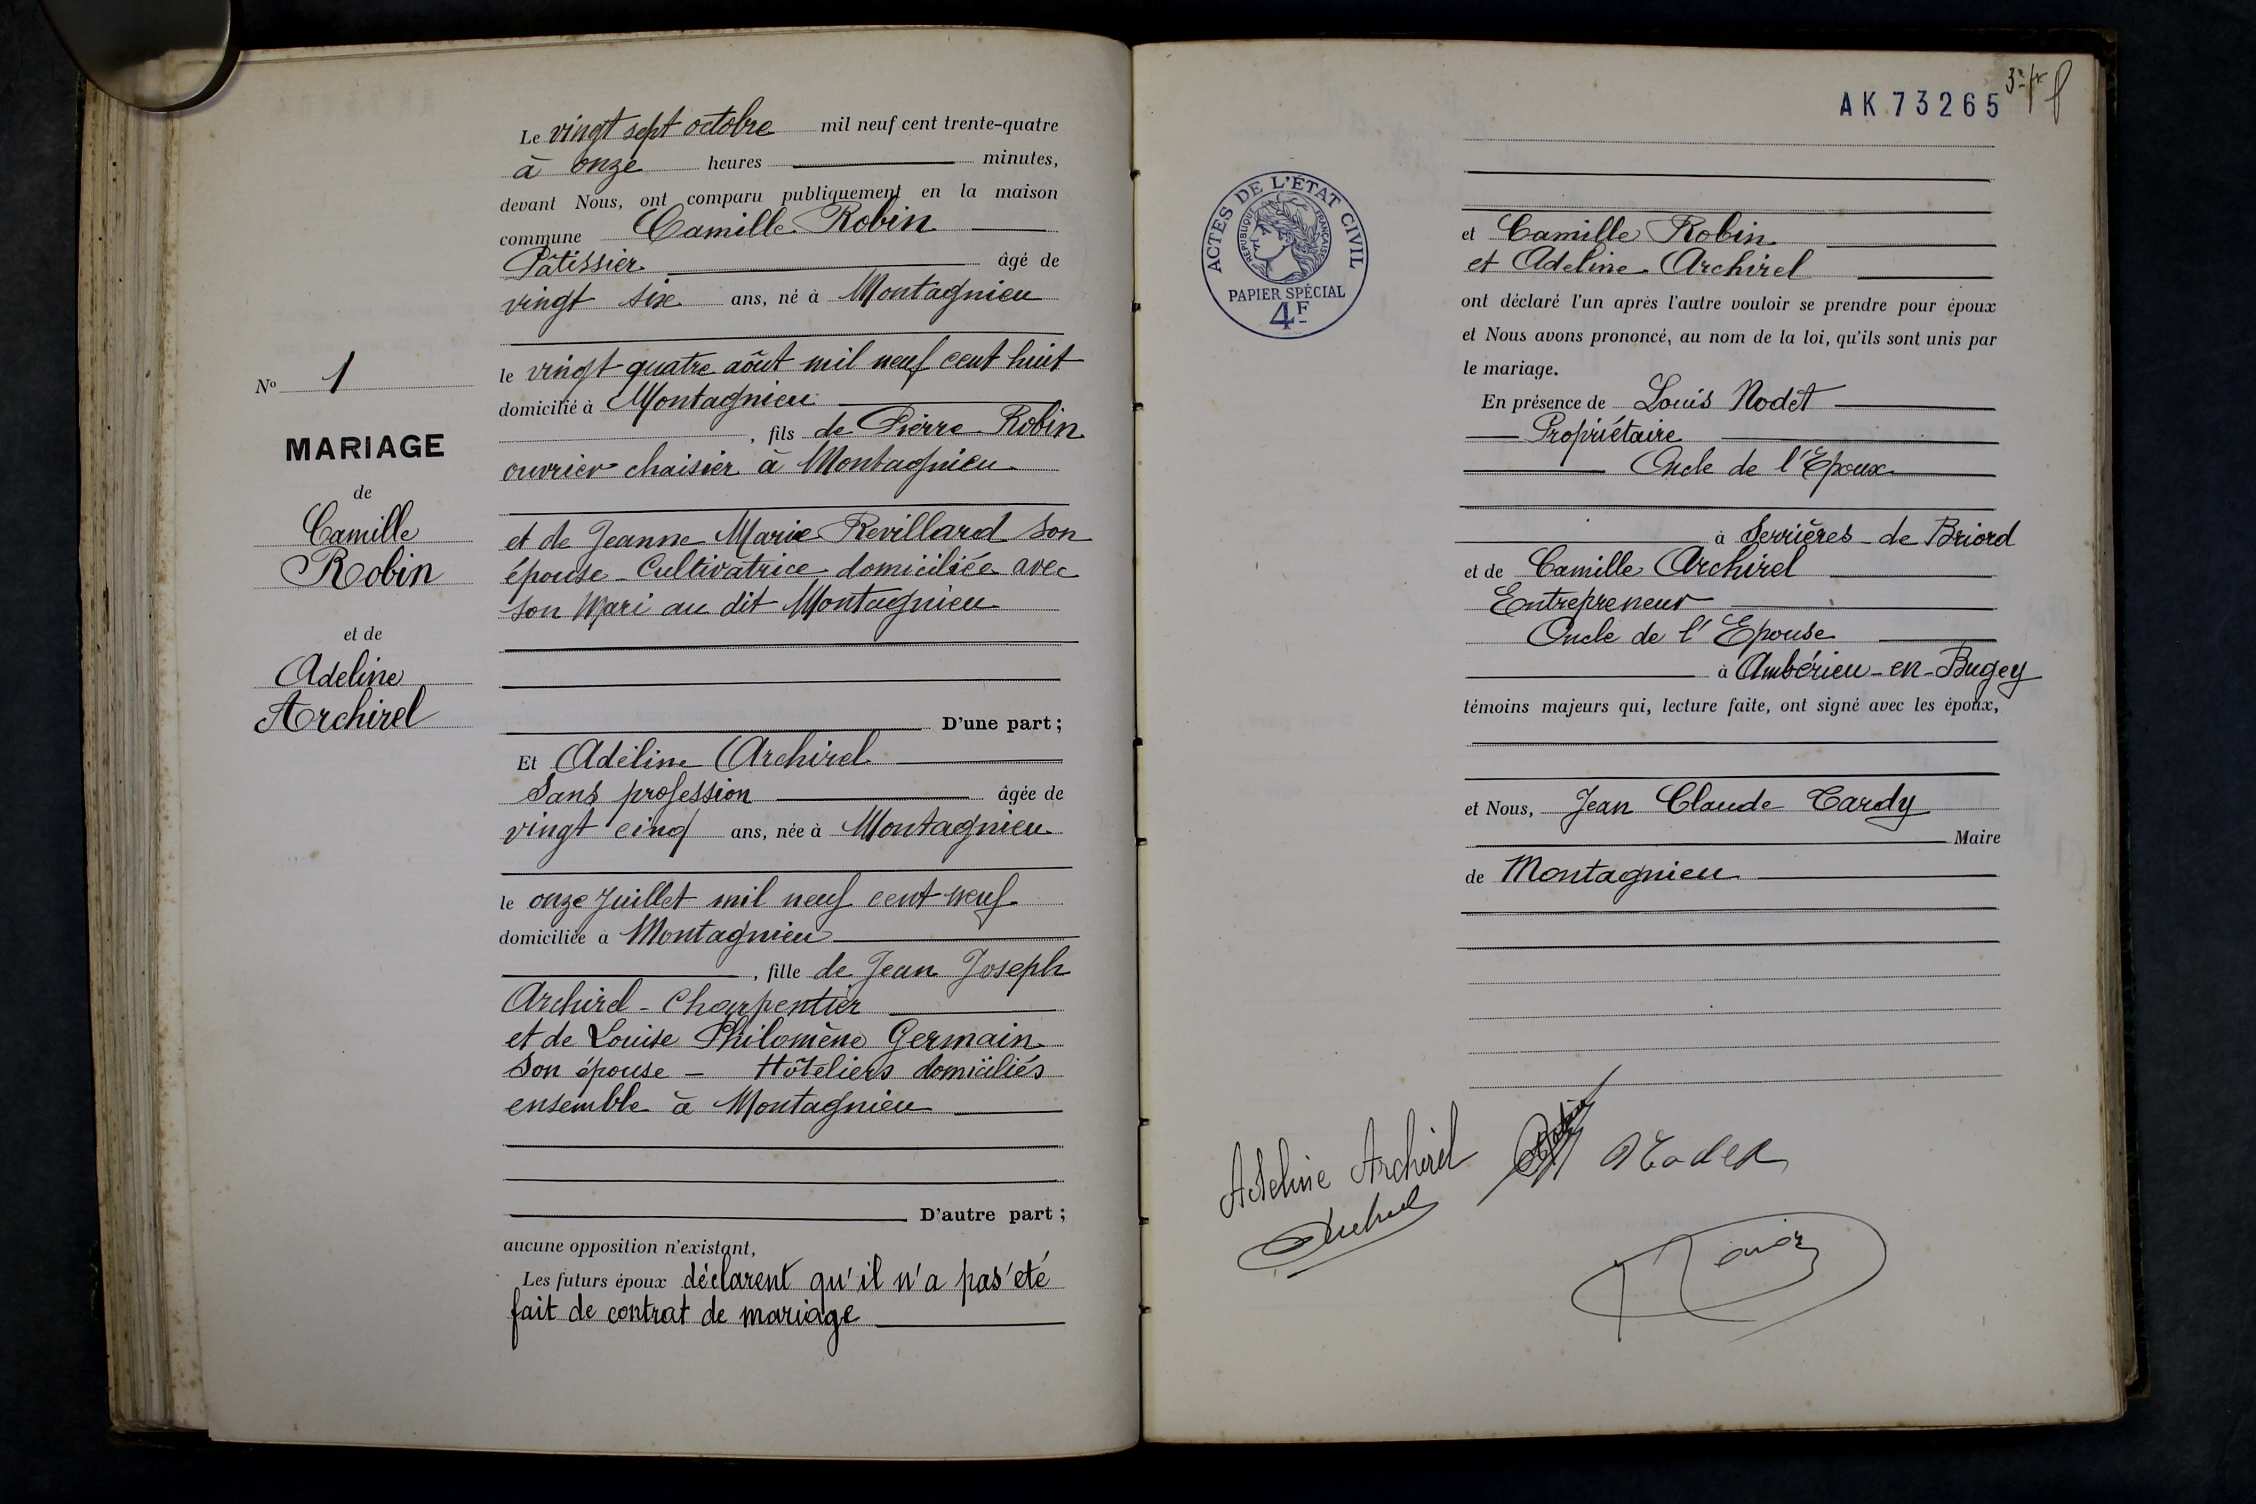 Le vingt sept octobre mil neuf cent trente-quatre
à onze heures minutes,
devant Nous, ont comparu publiquement en la maison
commune Camille Robin
Pâtissier âgé de
vingt six ans, né à Montagnieu
le vingt quatre août mil neuf cent huit
domicilié à Montagnieu
, fils de Pierre Robin
ouvrier chaisier à Montagnieu
et de Jeanne Marie Revillard son
épouse Cultivatrice domiciliée avec
son Mari au dit Montagnieu
D'une part ;
Et Adeline Archirel
Sans profession âgée de
vingt cinq ans, née à Montagnieu
le onze Juillet mil neuf cent neuf
domiciliée à Montagnieu
, fille de Jean Joseph
Archirel - Charpentier
et de Louise Philomène Germain
Son épouse - Hôteliers domiciliés
ensemble à Montagnieu
D'autre part ;
aucune opposition n'existant,
Les futurs époux déclarent qu'il n'a pas été
fait de contrat de mariage
No 1
MARIAGE
de
Camille
Robin
et de
Adeline
Archirel
AK 73265
ACTES DE L'ÉTAT CIVIL
RÉPUBLIQUE FRANÇAISE
PAPIER SPÉCIAL
4F
et Camille Robin
et Adeline Archirel
ont déclaré l'un après l'autre vouloir se prendre pour époux
et Nous avons prononcé, au nom de la loi, qu'ils sont unis par
le mariage.
En présence de Louis Nodet
Propriétaire
Oncle de l'Epoux
à Serrières-de Briord
et de Camille Archirel
Entrepreneur
Oncle de l'Epouse
à Ambérieu-en-Bugey
témoins majeurs qui, lecture faite, ont signé avec les époux,
et Nous, Jean Claude Tardy
Maire
de Montagnieu
Adeline Archirel Robin Nodet
Archirel
Tardy